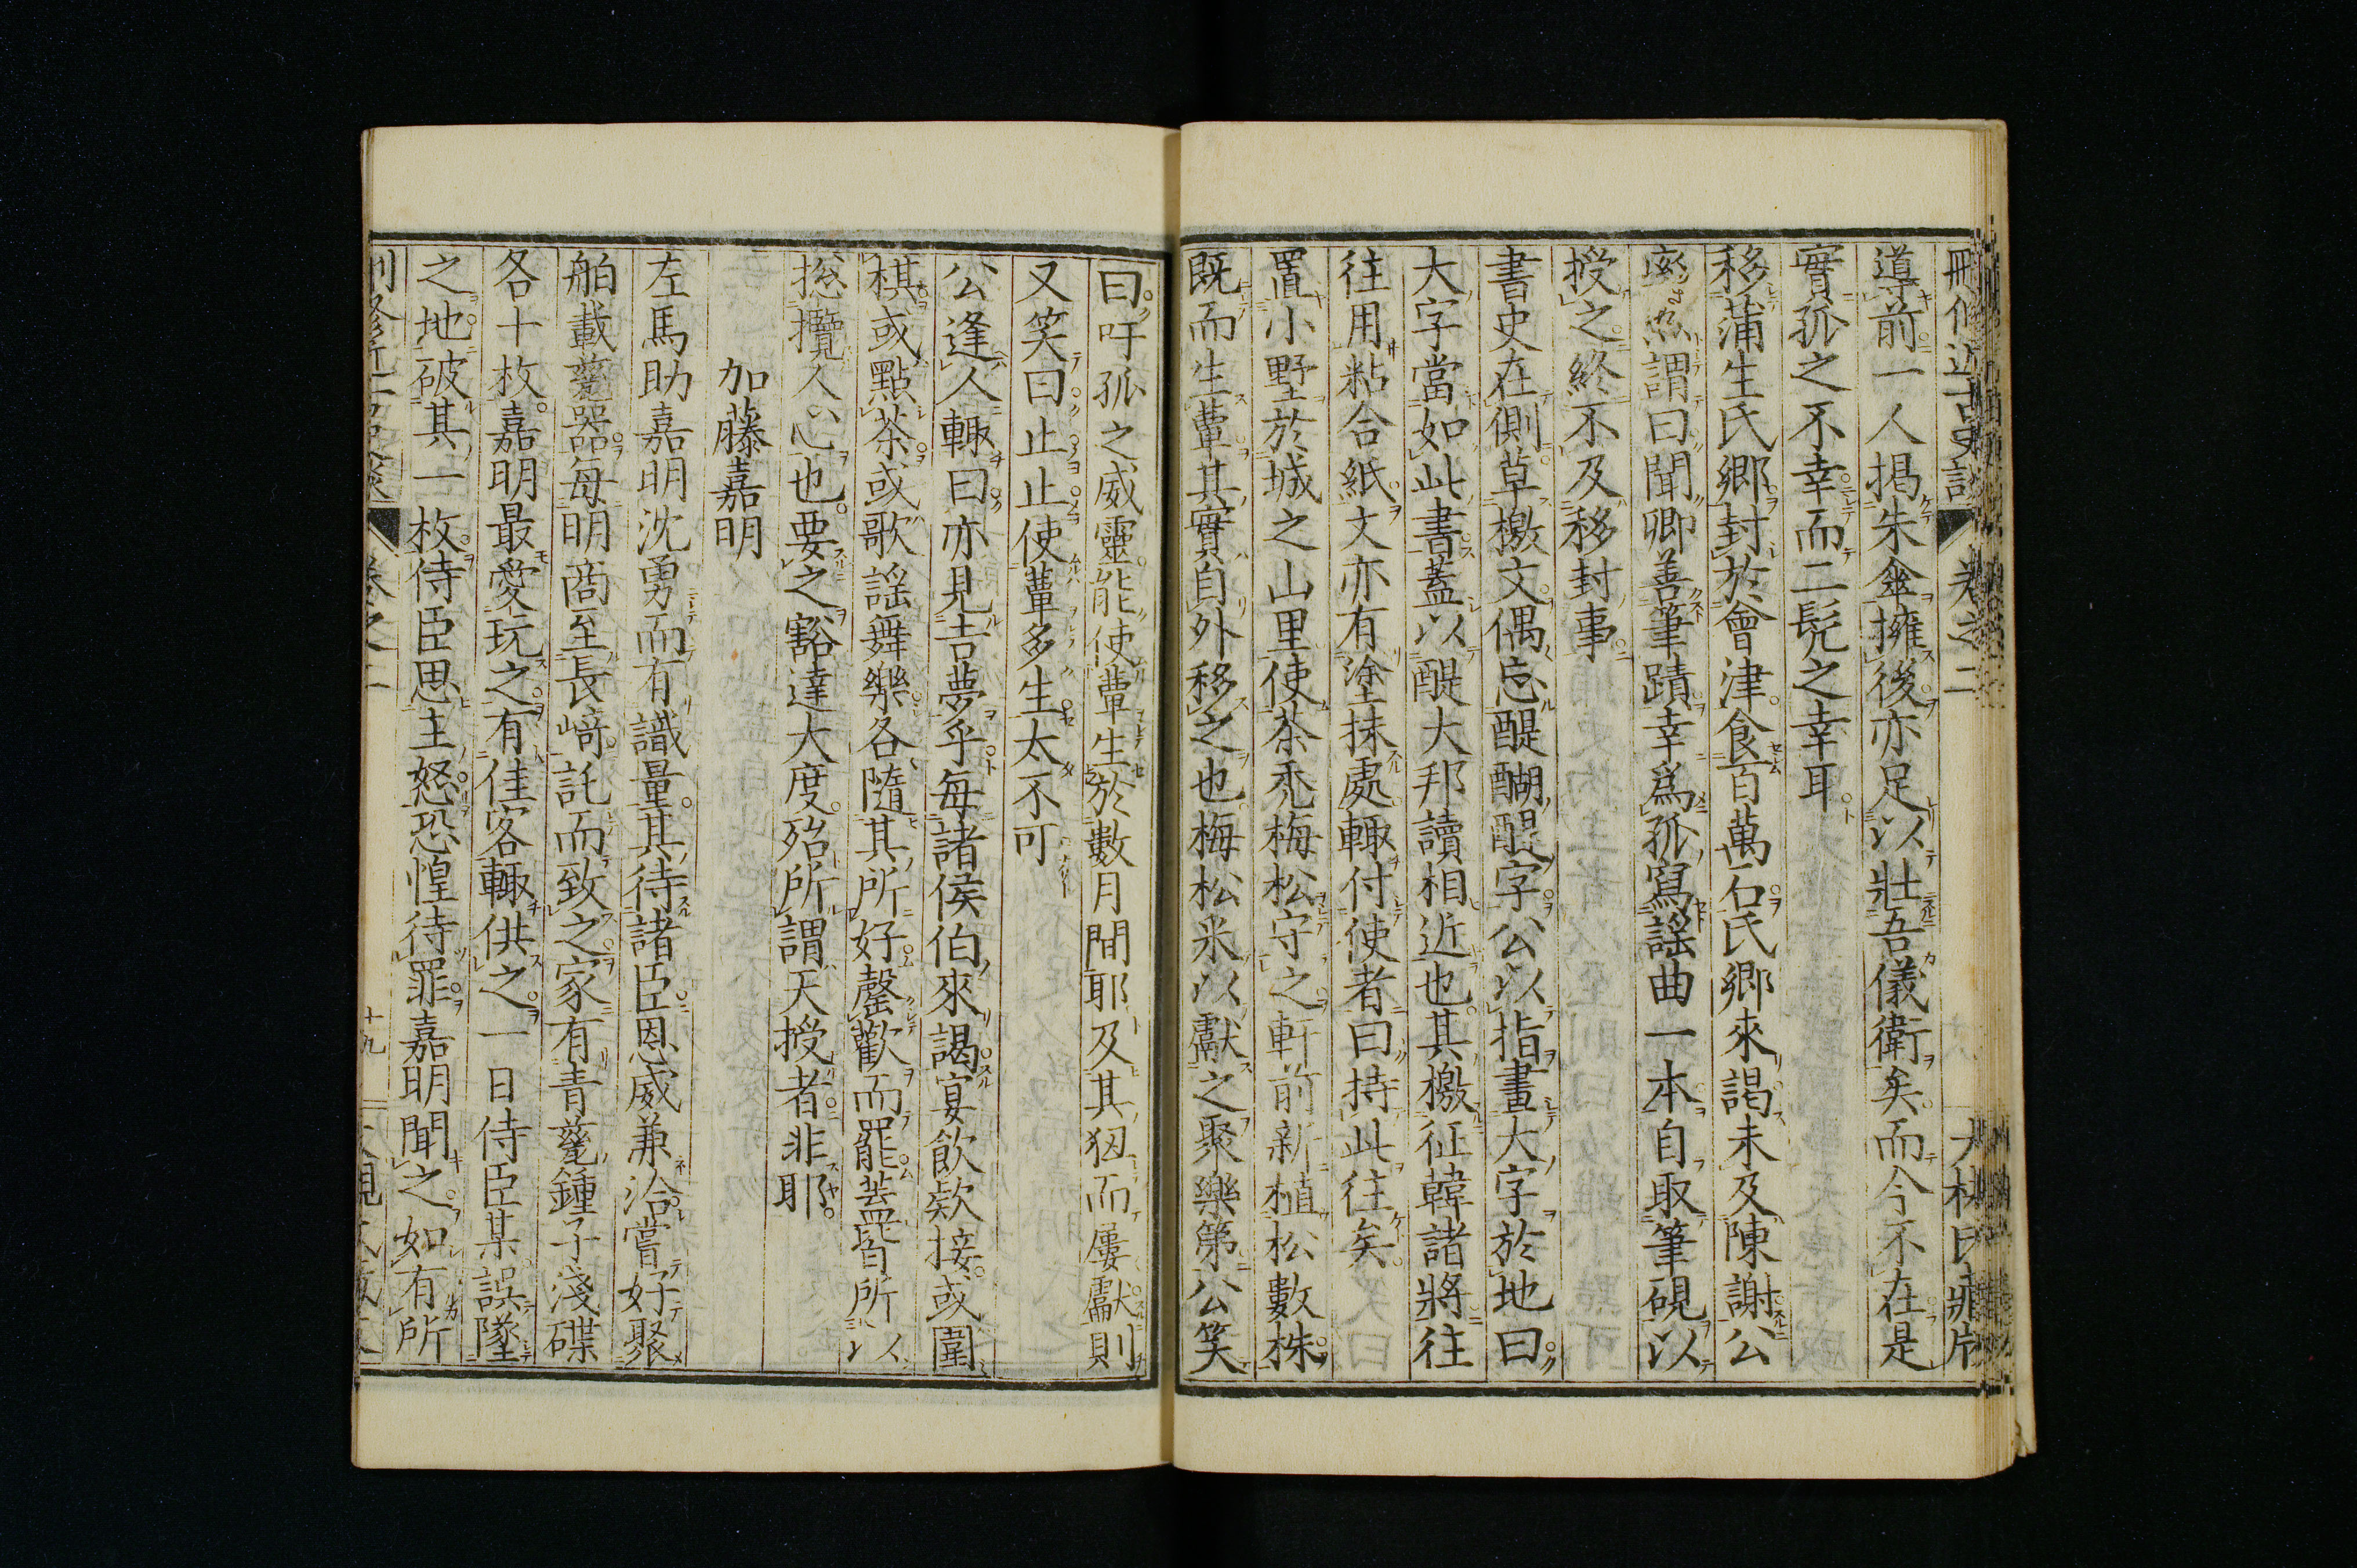 刪修近古史談 卷之二 大槻氏藏版
導前一人揭朱傘擁後亦足以壯吾儀衛矣而今不在是
實孤之不幸而二髠之幸耳
移蒲生氏郷封於會津食百萬石氏郷來謁未及陳謝公
熙謂曰聞卿善筆蹟幸爲孤寫謠曲一本自取筆硯以
授之終不及移封事
書史在側草檄文偶忘醍醐醍字公以指畫大字於地曰
大字當如此書蓋以醍大邦讀相近也其檄征韓諸將往
往用粘合紙文亦有塗抹處輙付使者曰持此往矣
置小野於城之山里使茶禿梅松守之軒前新植松數株
既而生蕈其實自外移之也梅松釆以獻之聚樂第公笑
曰吁孤之威靈能使蕈生於數月間耶及其犭而屢獻則
又笑曰止止使蕈多生太不可
公逢人輙曰亦見吉夢乎每諸侯伯來謁宴飮欵接或圍
棋或點茶或歌謠舞樂各隨其所好罄歡而罷蓋皆所以
摠攬人心也要之豁達大度殆所謂天授者非耶
加藤嘉明
左馬助嘉明沈勇而有識量其待諸臣恩威兼洽嘗好聚
舶載甆器每明商至長﨑託而致之家有青甆鍾子淺碟
各十枚嘉明最愛玩之有佳客輙供之一日侍臣某誤墜
之地破其一枚侍臣思主怒恐惶待罪嘉明聞之如有所
卷之二 十九